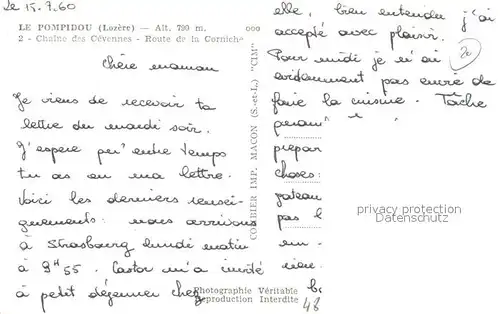 Le 15.7.60
LE POMPIDOU (Lozère) — Alt. 790 m.
2 - Chaîne des Cévennes - Route de la Corniche
chère maman
Je viens de recevoir ta
lettre du mardi soir.
J'espère qu'entre temps
tu as eu ma lettre.
Voici les derniers rensei-
gnements: nous arrivons
à Strasbourg lundi matin
à 9H55. Castor m'a invité
à petit déjeuner chez
COMBIER IMP. MACON (S.-et-L.) "CIM"
Photographie Véritable
Reproduction Interdite
elle, bien entendu j'ai
accepté avec plaisir.
Pour midi je n'ai
évidemment pas envie de
faire la cuisine. Tâche
prépar
choses:
gateau
pas
rien.
48
privacy protection
Datenschutz